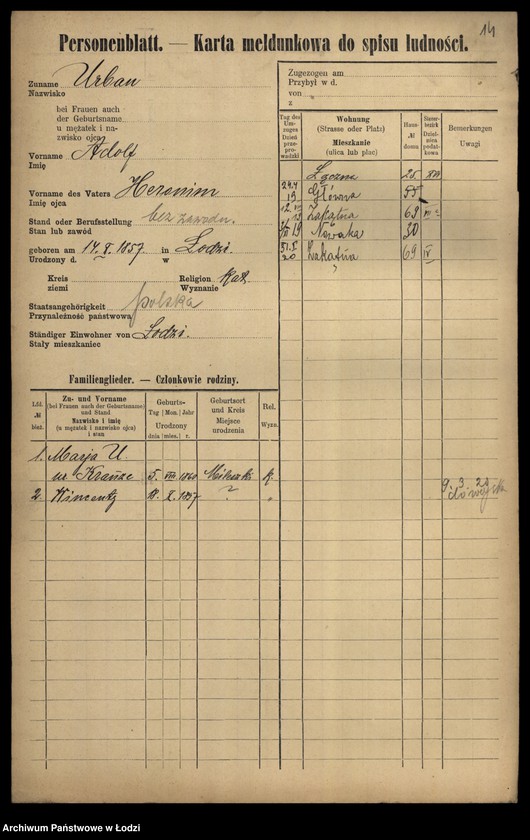 14
Personenblatt. — Karta meldunkowa do spisu ludności.
Zuname Urban
Nazwisko
bei Frauen auch
der Geburtsname
u mężatek i na-
zwisko ojca
Vorname Adolf
Imię
Vorname des Vaters Heronim
Imię ojca
Stand oder Berufsstellung bez zawodu.
Stan lub zawód
geboren am 14. X. 1857 in Łodzi.
Urodzony d. w
Kreis Religion Kat.
ziemi Wyznanie
Staatsangehörigkeit polska
Przynależność państwowa
Ständiger Einwohner von Łodzi.
Stały mieszkaniec
Zugezogen am
Przybył w d.
von
z
Tag des Um-zuges Dzień prze-prowadzki
Wohnung
(Strasse oder Platz)
Mieszkanie
(ulica lub plac)
Haus-
№
domu
Steuer-bezirk Dziel-nica podat-kowa
Bemerkungen
Uwagi
Łączna 25 XVI
Główna 55
Zakątna 69
19 Nowaka 30
20 Zakątna 69 IV
Familienglieder. — Członkowie rodziny.
Lfd.
№
bież.
Zu- und Vorname
(bei Frauen auch der Geburtsname)
und Stand
Nazwisko i imię
(u mężatek i nazwisko ojca)
i stan
Geburts-
Tag | Mon. | Jahr
Urodzony
dnia | mies. | r.
Geburtsort
und Kreis
Miejsce
urodzenia
Rel.
Wyzn.
1. Marja U.
ur. Krauze 5. VIII 1860 K.
2. Wincenty 18. X. 1897 ? "
9 3 20
Archiwum Państwowe w Łodzi